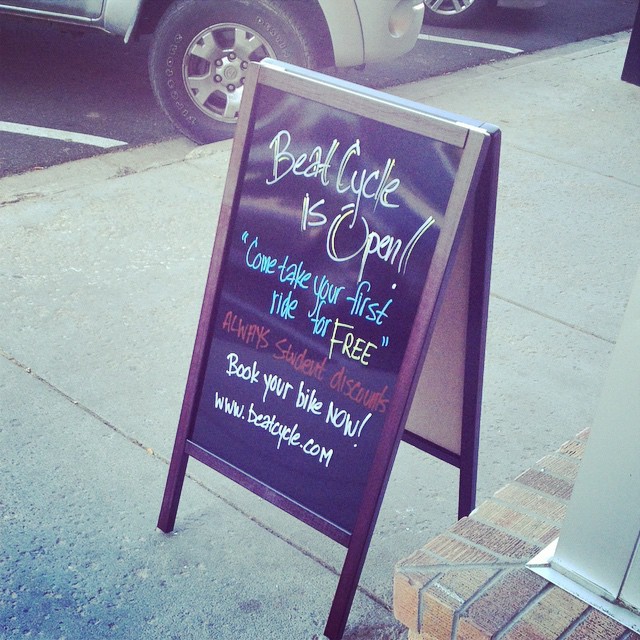 Beat Cycle
is Open!!
"Come take your first
ride for FREE"
ALWAYS Student discounts
Book your bike NOW!
www.beatcycle.com